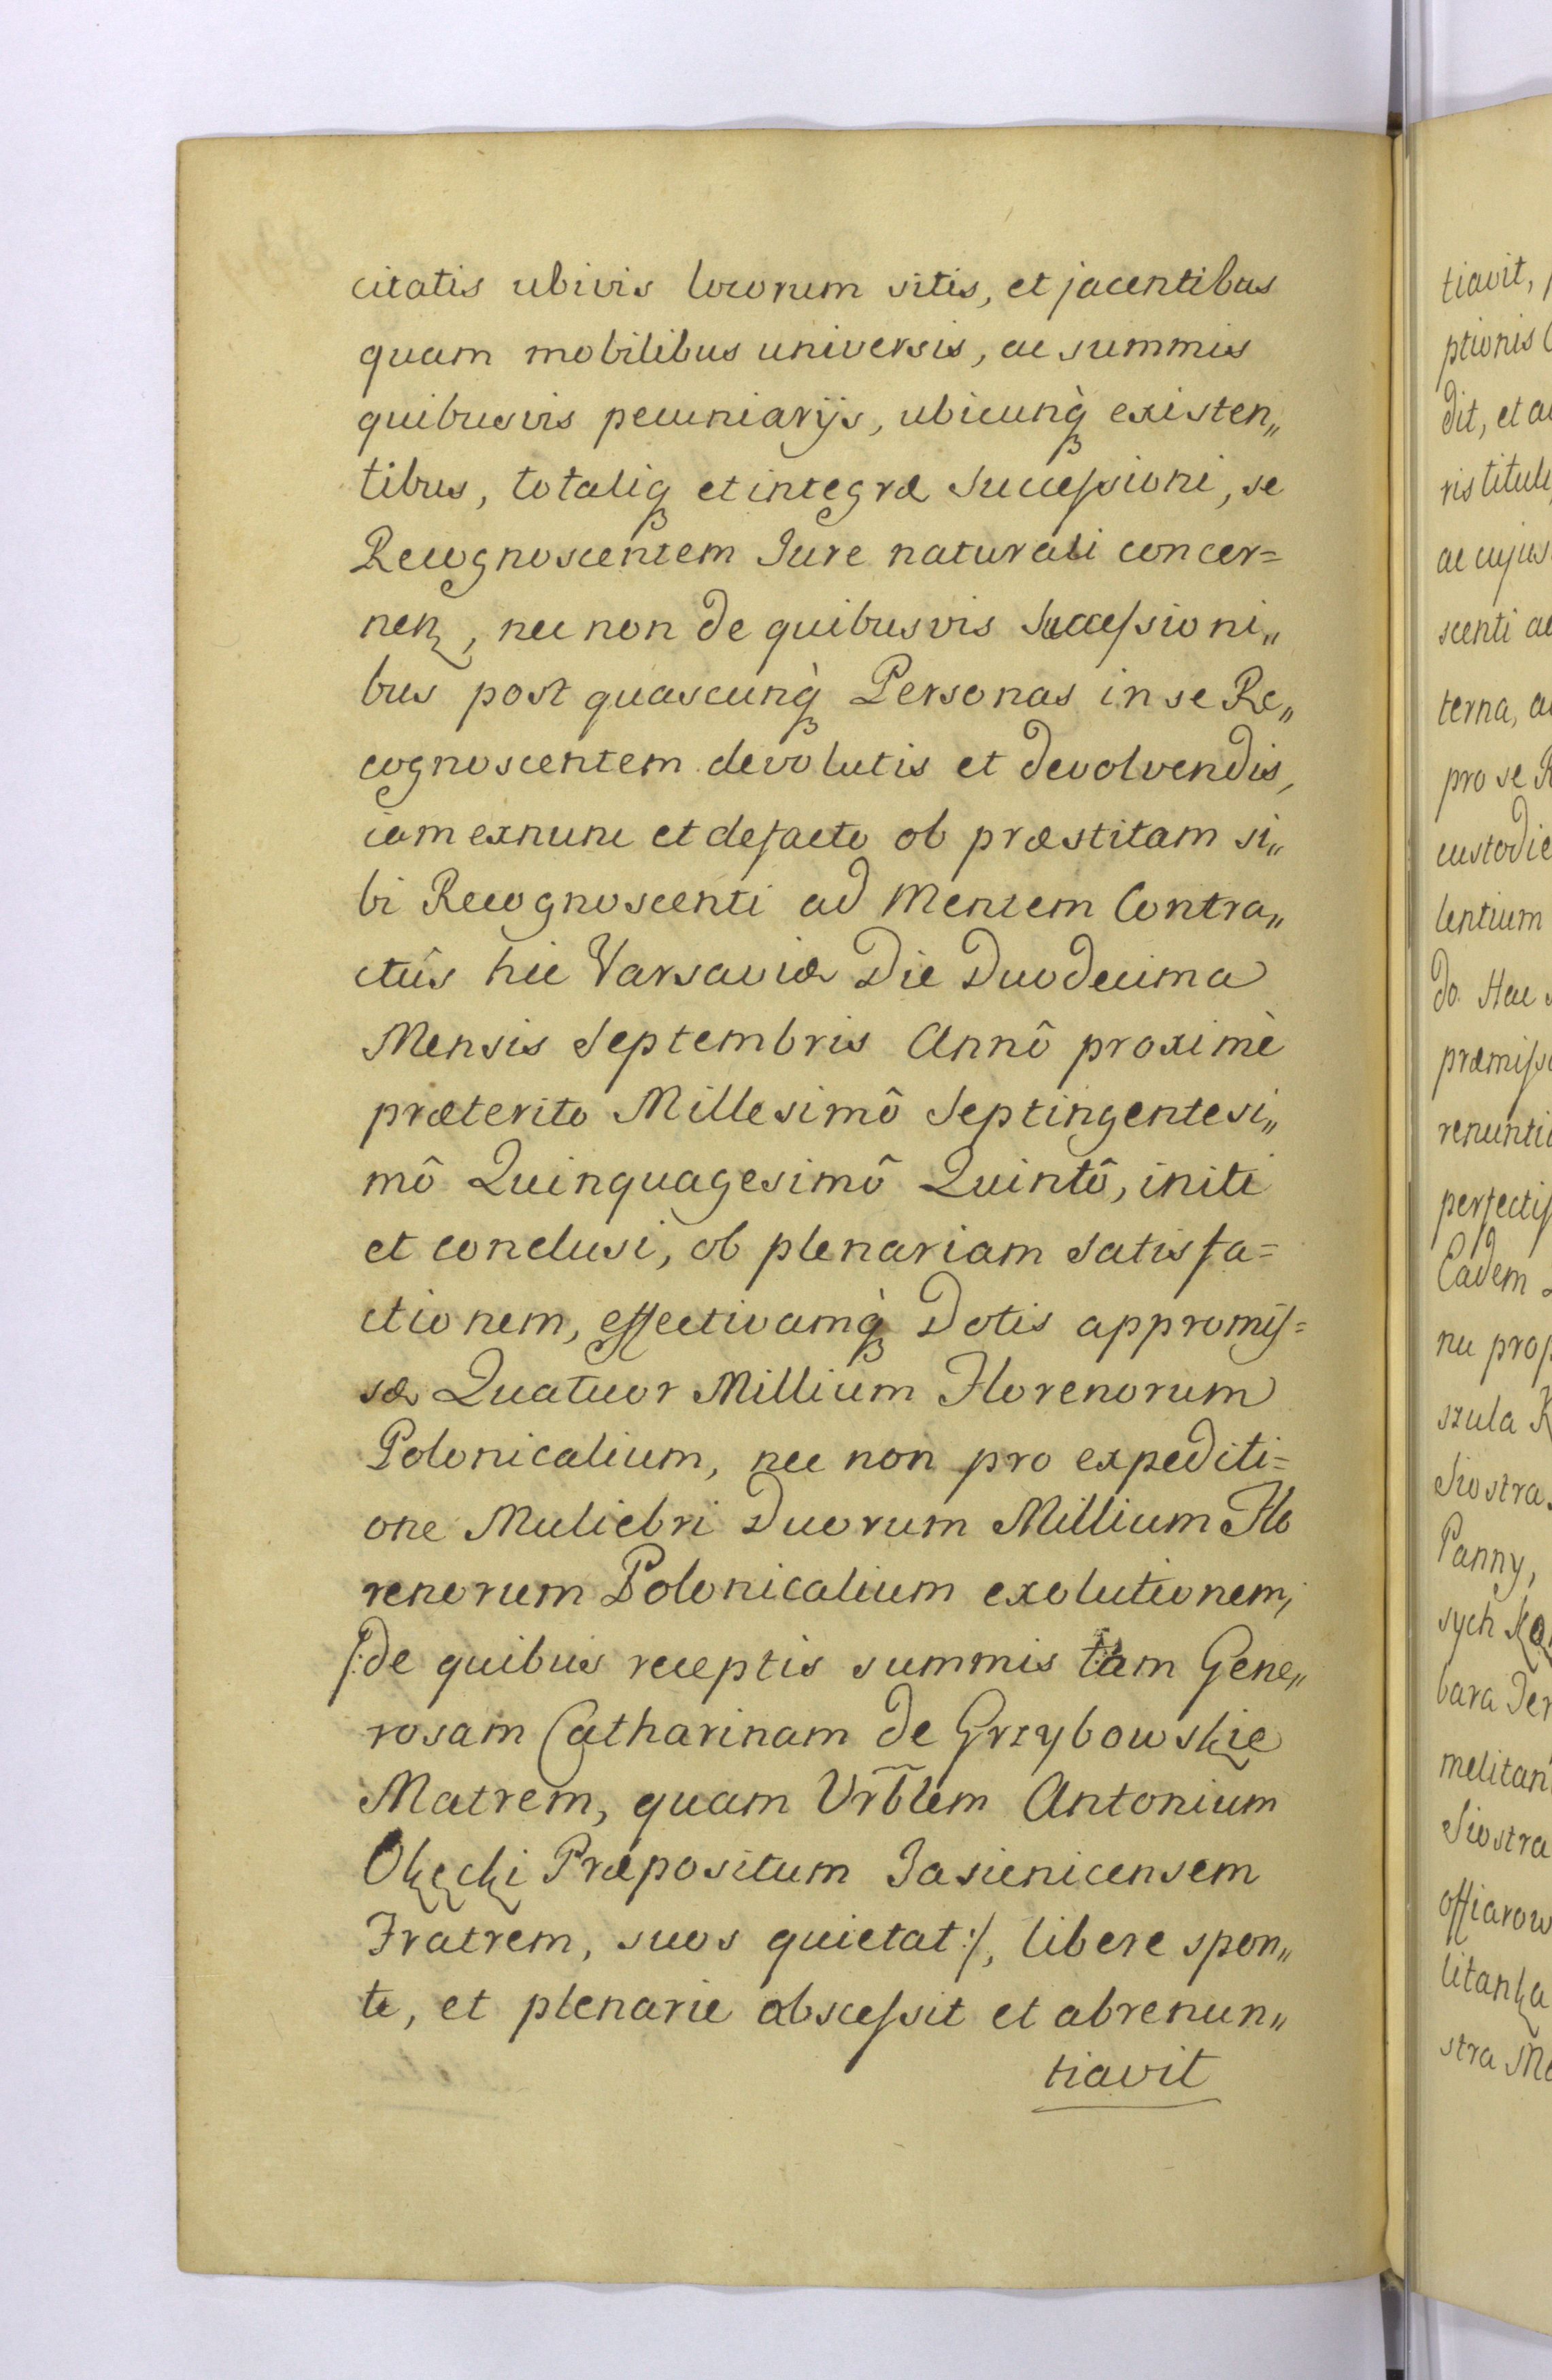 citatis ubivis locorum sitis, et jacentibus
quam mobilibus universis, ac summis
quibusvis pecuniarijs, ubicunq̀ existen„
tibus, totaliq et integræ Successioni, se
Recognoscentem Iure naturali concer=
nen, nec non de quibusvis Successioni„
bus post quascunq̀ Personas in se Re„
cognoscentem devolutis et devolvendis,
iam exnunc et defacto ob præstitam si„
bi Recognoscenti ad Mentem Contra„
ctûs hic Varsaviæ Die Duodecima
Mensis Septembris Annô proximè
præterito Millesimô Septingentesi„
mô Quinquagesimô Quintô, initi
et conclusi, ob plenariam Satisfa=
ctionem, effectivamq̀ Dotis appromis=
sæ Quatuor Millium Florenorum
Polonicalium, nec non pro expediti=
one Muliebri Duorum Millium Flo
renorum Polonicalium exolutionem,
/:de quibus receptis summis tam Gene„
rosam Catharinam de Grzybowskie
Matrem, quam Vrb̃lem Antonium
Okęcki Præpositum Jasienicensem
Fratrem, suos quietat:/, libere spon„
te, et plenarie abscessit et abrenun„
tiavit
tiavit,
ptionis
dit, et
ris
ac cujus
scenti
terna,
pro se
custodie
lentium
do. Hac
præmisso
renuntia
perfectis
Eadem
nu prop
szula
Siostra
Panny,
sych
bara
melitan
Siostra
offiarow
litanka
stra